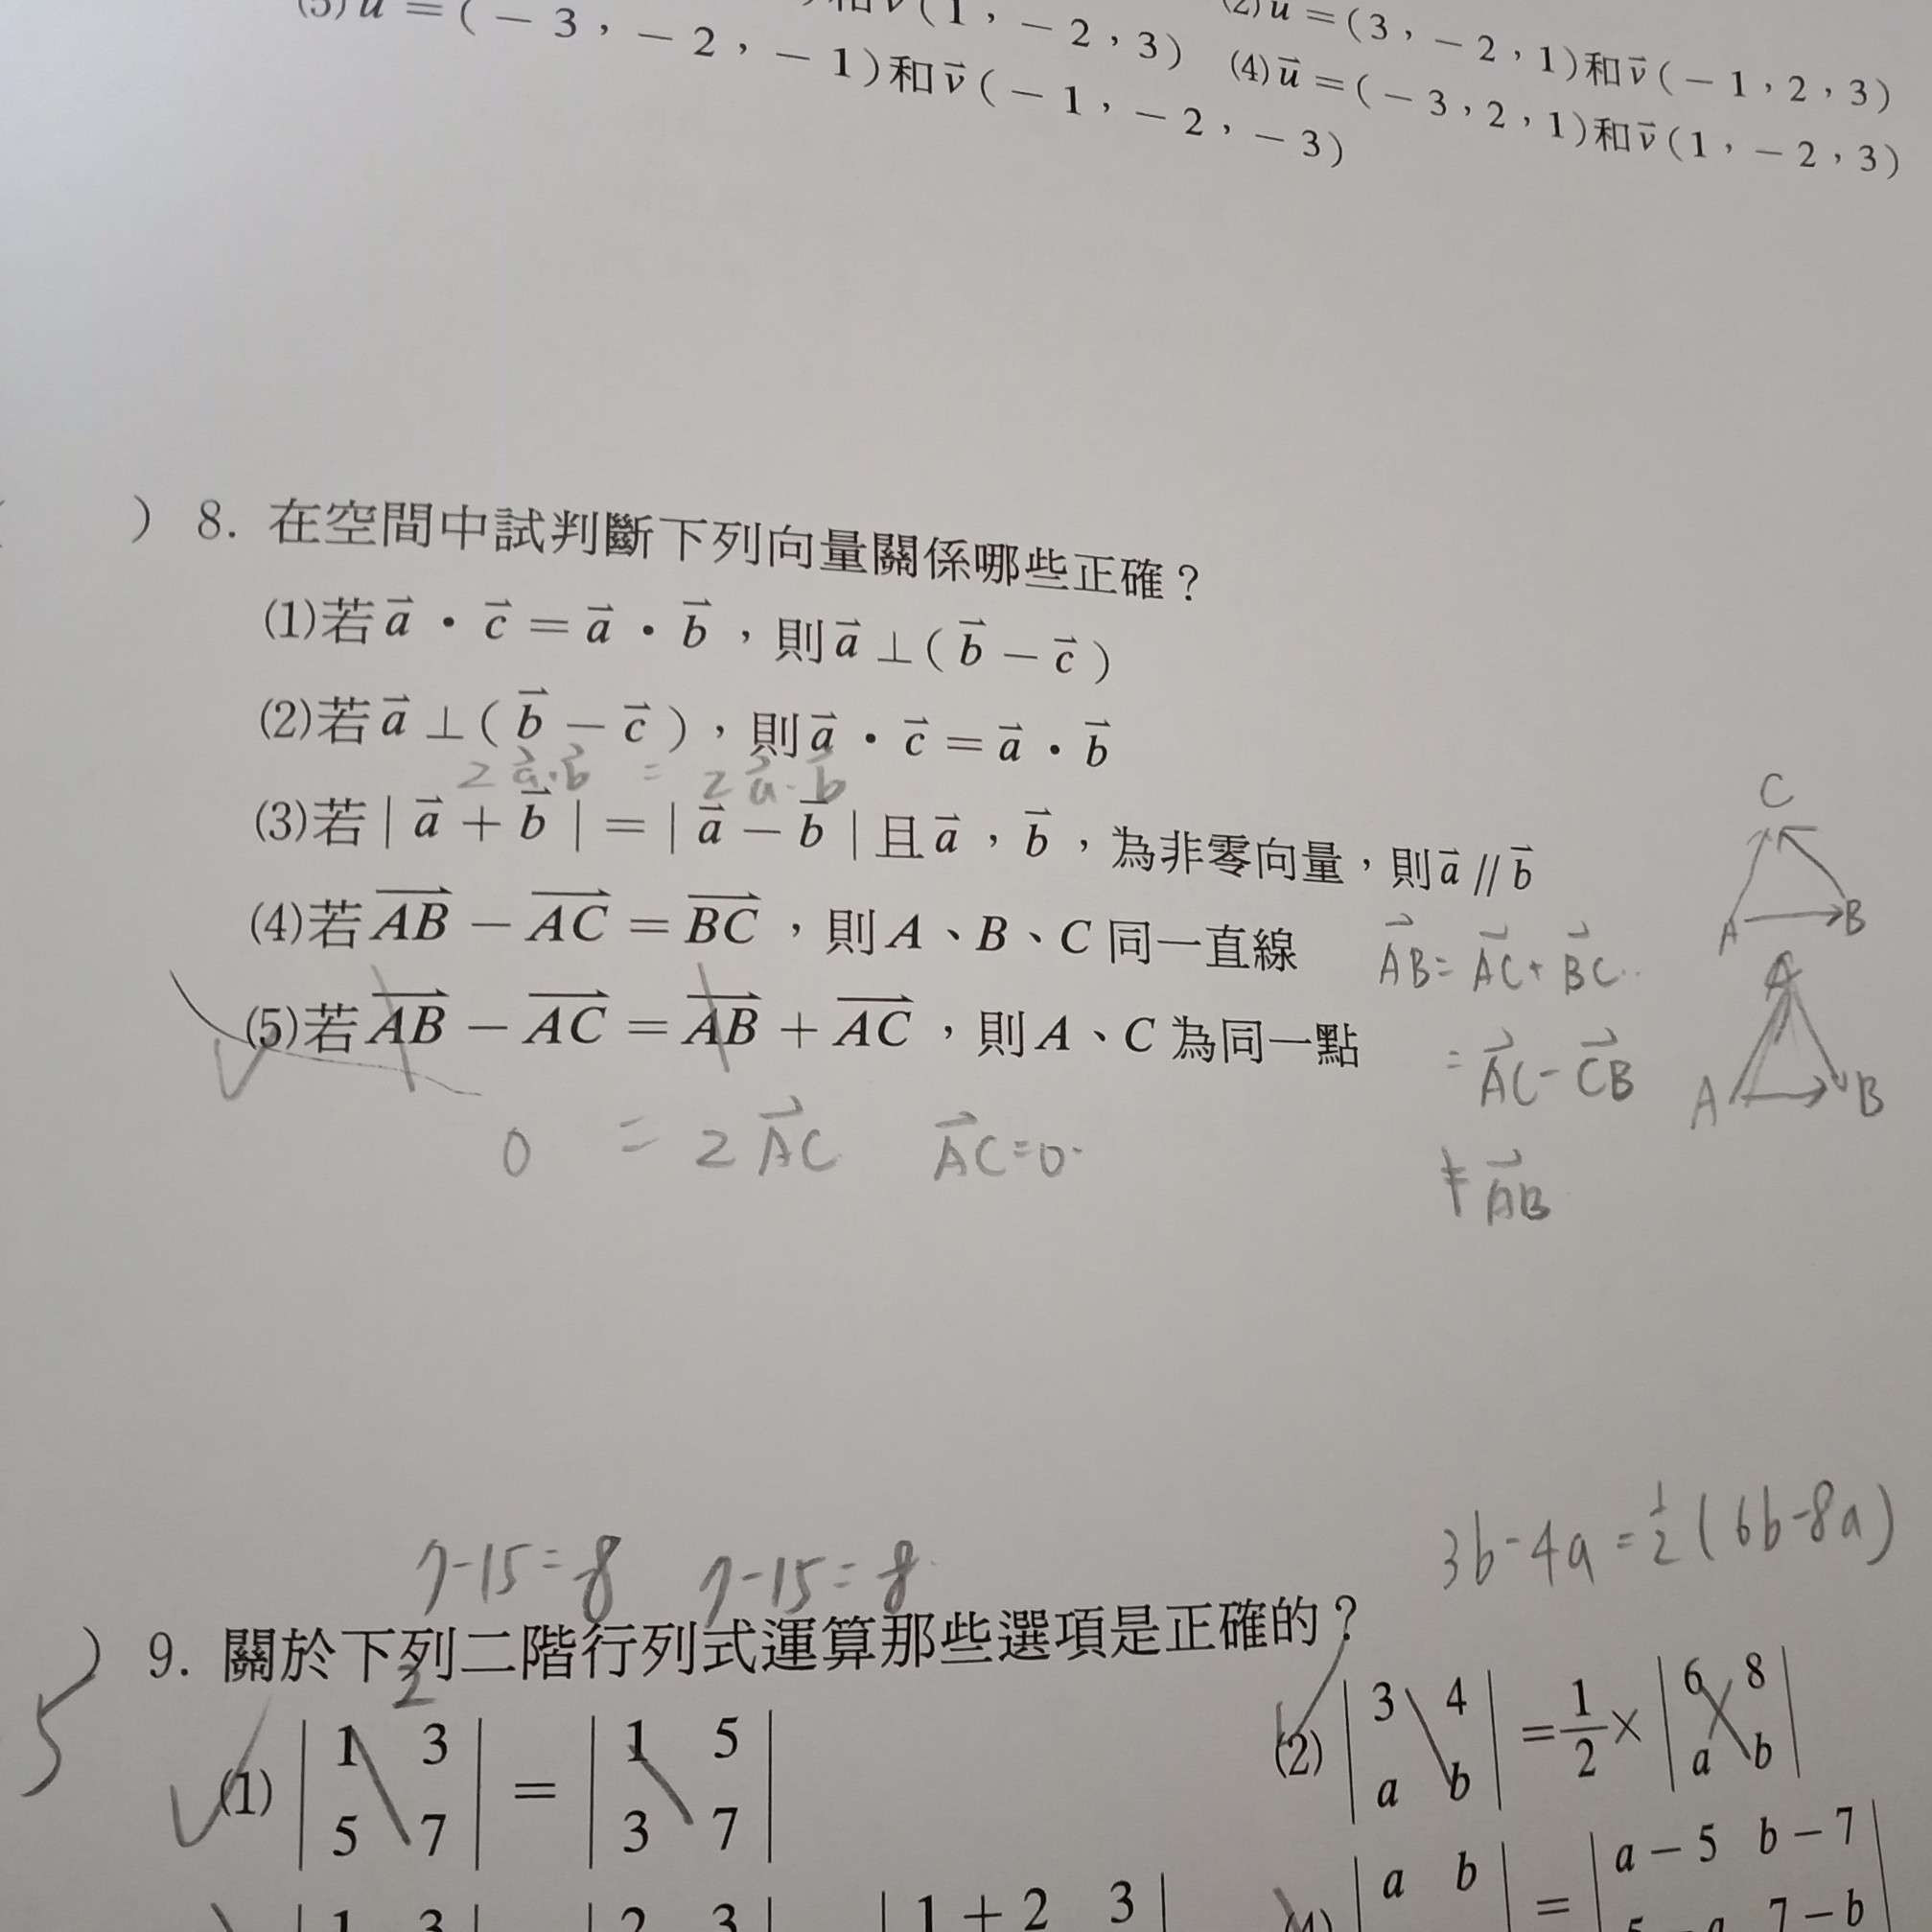 和v⃗(1，−2，3)
(2)u⃗=(3，−2，1)和v⃗(−1，2，3)
(3)u⃗=(−3，−2，−1)和v⃗(−1，−2，−3)
(4)u⃗=(−3，2，1)和v⃗(1，−2，3)
) 8. 在空間中試判斷下列向量關係哪些正確？
(1)若a⃗・c⃗=a⃗・b⃗，則a⃗⊥(b⃗−c⃗)
(2)若a⃗⊥(b⃗−c⃗)，則a⃗・c⃗=a⃗・b⃗
2a⃗·b⃗ = 2a⃗·b⃗
(3)若|a⃗+b⃗|=|a⃗−b⃗|且a⃗，b⃗，為非零向量，則a⃗∥b⃗
C
A B
(4)若AB⃗−AC⃗=BC⃗，則A、B、C同一直線
AB⃗=AC⃗+BC⃗
(5)若AB⃗−AC⃗=AB⃗+AC⃗，則A、C為同一點
=AC⃗−CB⃗
A B
0 = 2AC⃗ AC⃗=0
≠AB⃗
7-15=8 7-15=8
3b-4a=1/2(6b-8a)
) 9. 關於下列二階行列式運算那些選項是正確的？
5
2
(1) |1 3| = |1 5|
|5 7| |3 7|
(2) |3 4| = 1/2 × |6 8|
|a b| |a b|
|1 3| |2 3| |1+2 3|
(4) |a b| = |a−5 b−7|
7−b|